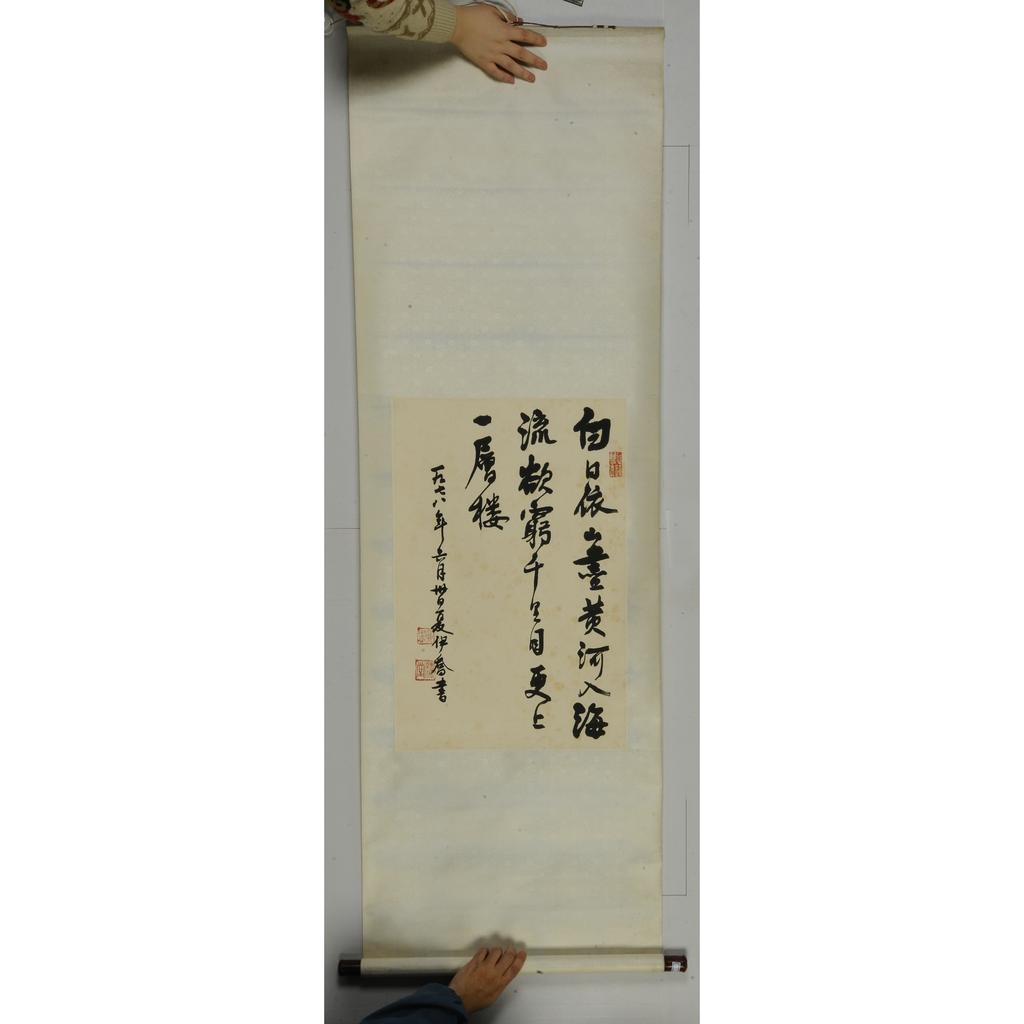 白日依山盡黄河入海
流欲窮千里目更上
一層楼
一九七八年六月卅日夏伊喬書